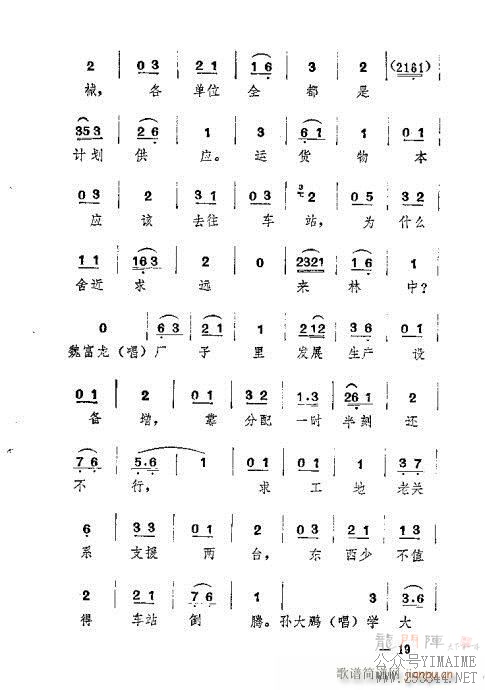 2 | 0 3 | 2 1 | 1 6 | 3 | 2 | (2161)
械， 各 单位 全 都 是
353 | 2 6 | 1 | 3 | 6 1 | 1 | 0 1
计划 供 应。 运 货 物 本
0 3 | 2 | 3 1 | 0 1 | 2 | 0 5 | 3 2
应 该 去往 车 站， 为 什么
1 1 | 163 | 2 | 0 | 2321 | 1 6 |
舍近 求 远 来 林 中？
0 | 6 3 | 2 1 | 1 | 212 | 3 6 | 0 1
魏富龙（唱）厂 子 里 发展 生产 设
0 1 | 2 | 0 1 | 3 2 | 1·3 | 26 1 | 2
备 增， 靠 分配 一时 半刻 还
7 6 | 5·6 | 1 | 0 1 | 1 0 | 1 | 3 7
不 行， 求 工 地 老关
6 | 3 3 | 0 1 | 2 | 0 1 | 2 1 | 1 3
系 支援 两 台， 东 西少 不值
2 | 2 1 | 0 1 | 7 6 | 1 | 3 | 3·6
得 车站 倒 腾。 孙大鹏（唱）学 大
— 19
龍門陣
公众号YIMAIME
歌谱简谱网 jianpu.cn
www.253344.net